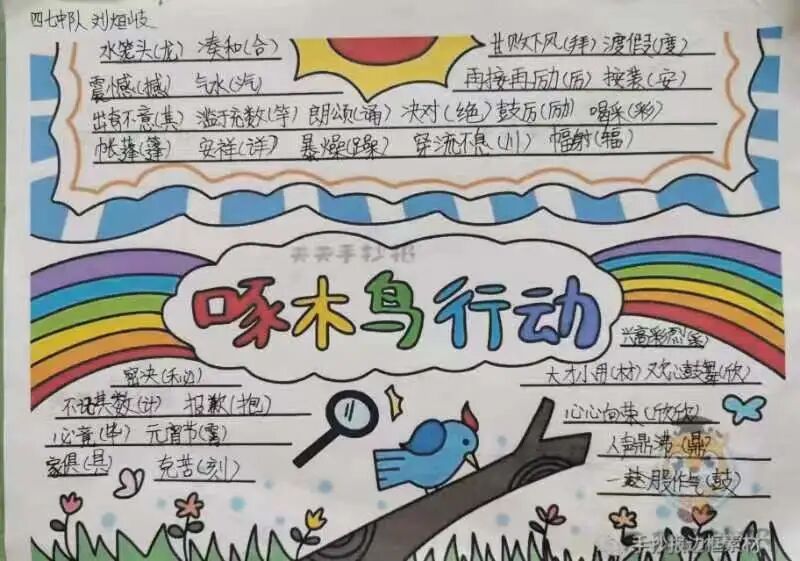 四七中队 刘烜岐
水笼头(龙) 凑和(合)
震憾(撼) 气水(汽)
甘败下风(拜) 渡假(度)
再接再励(厉) 按装(安)
出奇不意(其) 滥于充数(竽) 朗颂(诵) 决对(绝) 鼓厉(励) 喝采(彩)
帐蓬(篷) 安祥(详) 暴燥(躁) 穿流不息(川) 幅射(辐)
天天手抄报
啄木鸟行动
密决(秘)
不记其数(计) 报歉(抱)
必竟(毕) 元霄节(宵)
家俱(具) 克苦(刻)
兴高彩烈(采)
大才小用(材) 欢心鼓舞(欣)
心心向荣(欣欣)
人声鼎沸(鼎)
一股作气(鼓)
手抄报边框素材